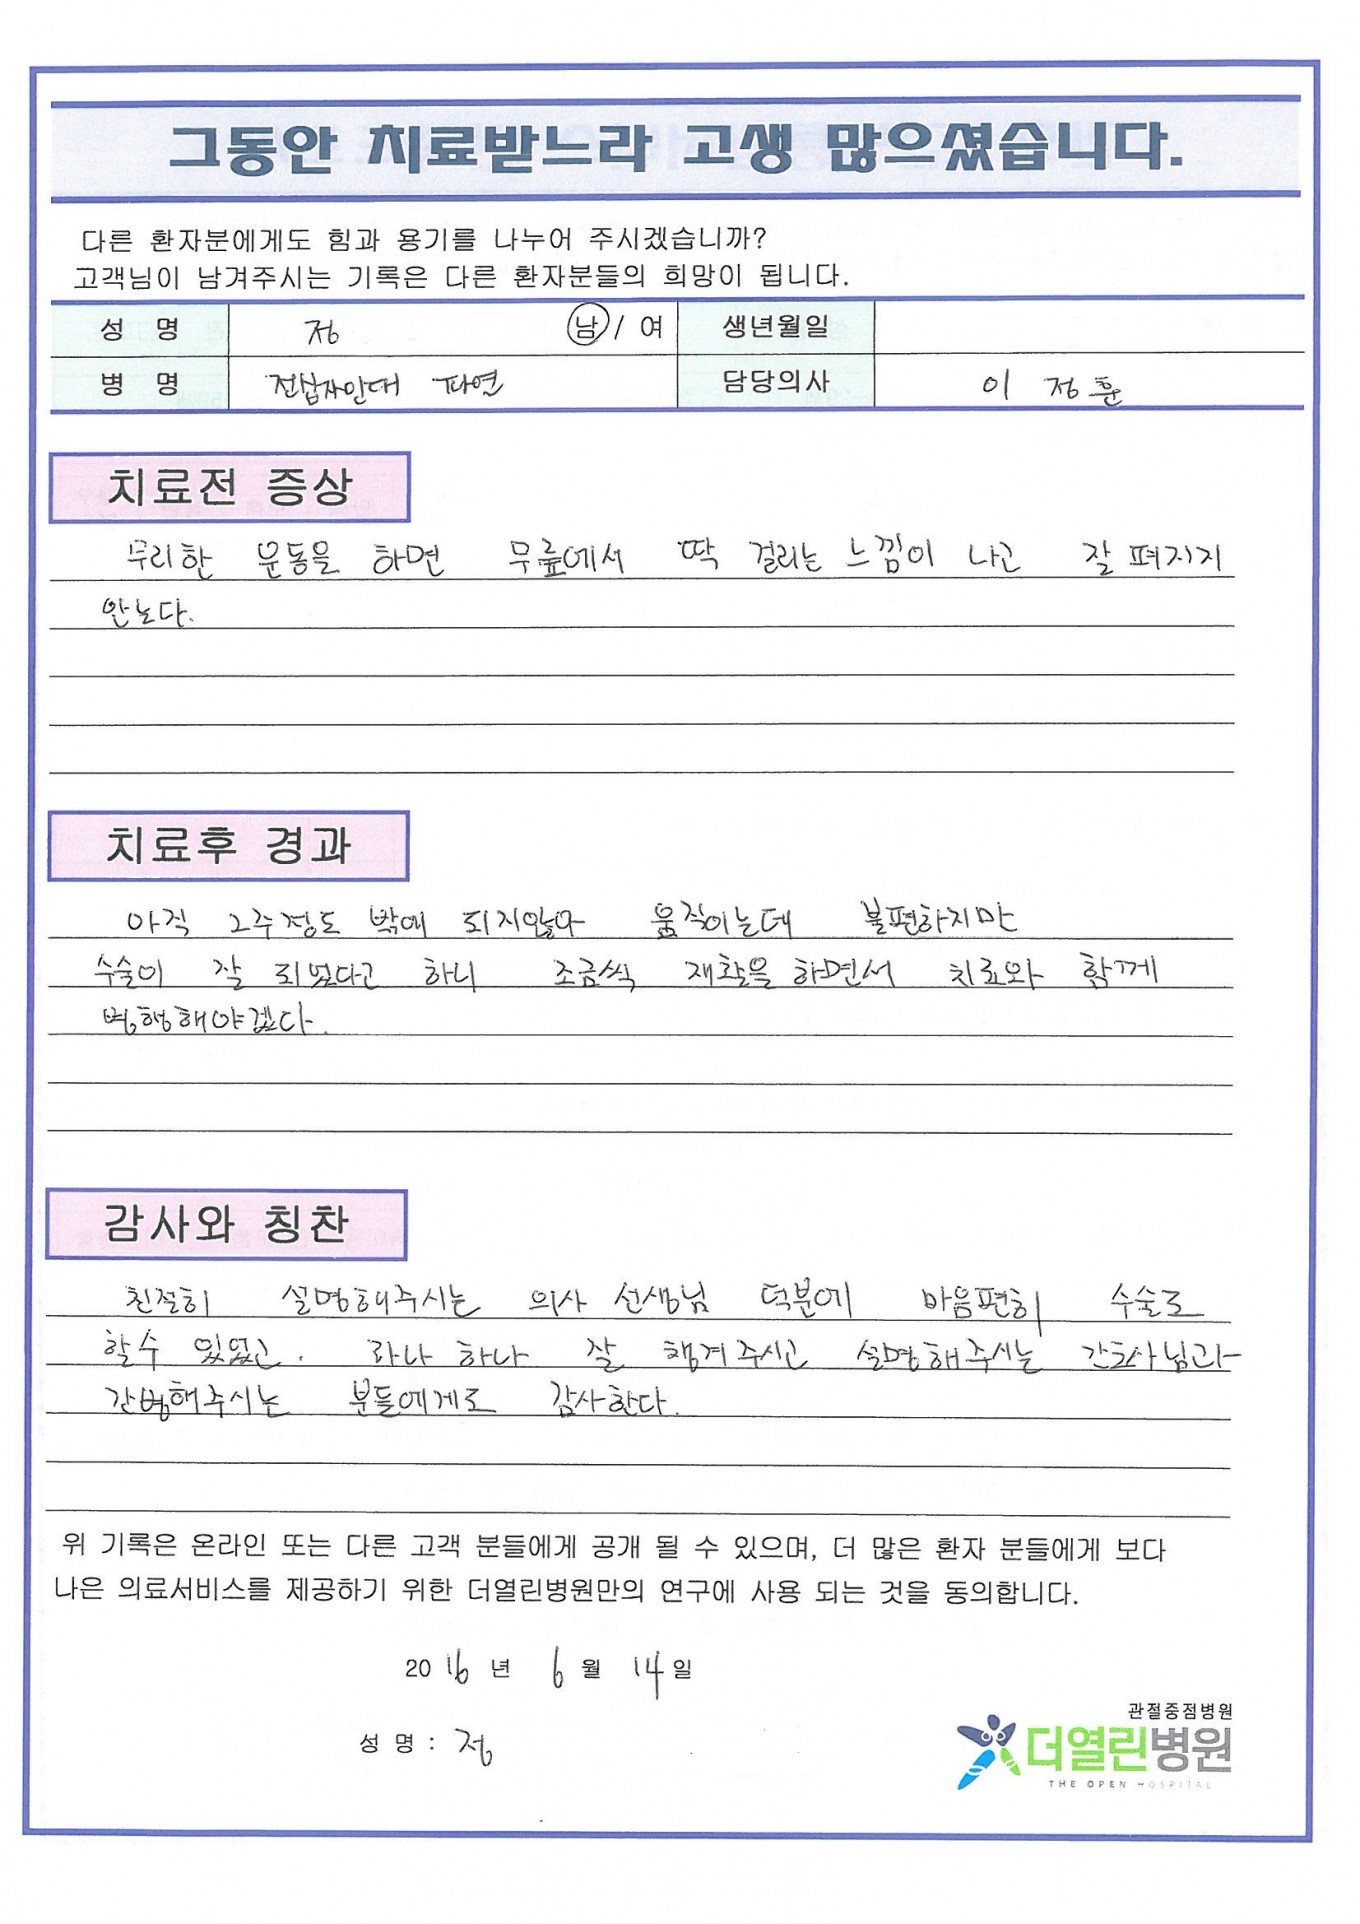 그동안 치료받느라 고생 많으셨습니다.
다른 환자분에게도 힘과 용기를 나누어 주시겠습니까?
고객님이 남겨주시는 기록은 다른 환자분들의 희망이 됩니다.
성 명 정 남 / 여 생년월일
병 명 전십자인대 파열 담당의사 이 정훈
치료전 증상
무리한 운동을 하면 무릎에서 딱 걸리는 느낌이 나고 잘 펴지지
안는다.
치료후 경과
아직 2주정도 밖에 되지않아 움직이는데 불편하지만
수술이 잘 되었다고 하니 조금씩 재활을 하면서 치료와 함께
병행해야겠다.
감사와 칭찬
친절히 설명해주시는 의사 선생님 덕분에 마음편히 수술도
할수 있었고. 하나 하나 잘 챙겨주시고 설명해주시는 간호사님과
간병해주시는 분들에게도 감사한다.
위 기록은 온라인 또는 다른 고객 분들에게 공개 될 수 있으며, 더 많은 환자 분들에게 보다
나은 의료서비스를 제공하기 위한 더열린병원만의 연구에 사용 되는 것을 동의합니다.
2016 년 6 월 14 일
성 명 : 정
관절중점병원
더열린병원
THE OPEN HOSPITAL